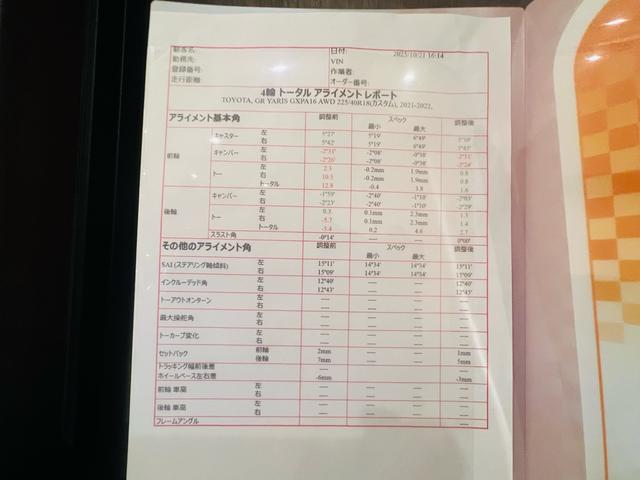 顧客名: 日付: 2025/10/21 16:14
勤務先: VIN
登録番号: 作業者:
走行距離: オーダー番号:
4輪 トータル アライメント レポート
TOYOTA, GR YARIS GXPA16 AWD 225/40R18(カスタム), 2021-2022,
アライメント基本角 調整前 スペック 調整後
最小 最大
前輪 キャスター 左 5°27' 5°19' 6°49'
右 5°42' 5°19' 6°49'
キャンバー 左 -2°31' -2°08' -0°38' -2°31'
右 -2°26' -2°08' -0°38'
トー 左 2.3 -0.2mm 1.9mm 0.8
右 10.5 -0.2mm 1.9mm 0.8
トータル 12.8 -0.4 3.8 1.6
後輪 キャンバー 左 -1°59' -2°40' -1°10' -2°03'
右 -2°23' -2°40' -1°10' -2°29'
トー 左 0.3 0.1mm 2.3mm 1.3
右 -5.7 0.1mm 2.3mm 1.4
トータル -5.4 0.2 4.6 2.7
スラスト角 -0°14' ---- ---- 0°00'
その他のアライメント角 調整前 スペック 調整後
最小 最大
SAI (ステアリング軸傾斜) 左 15°11' 14°34' 14°34' 15°11'
右 15°09' 14°34' 14°34' 15°09'
インクルーデッド角 左 12°40' ---- ---- 12°40'
右 12°43' ---- ---- 12°45'
トーアウトオンターン 左 ---- ---- ---- ----
右 ---- ---- ---- ----
最大操舵角 左 ---- ---- ---- ----
右 ---- ---- ---- ----
トーカーブ変化 左 ---- ---- ---- ----
右 ---- ---- ---- ----
セットバック 前輪 2mm ---- ---- 1mm
後輪 7mm ---- ---- 5mm
トラッキング幅前後差
ホイールベース左右差 -6mm ---- ---- -3mm
前輪 車高 左 ---- ---- ---- ----
右 ---- ---- ---- ----
後輪 車高 左 ---- ---- ---- ----
右 ---- ---- ---- ----
フレームアングル ---- ---- ---- ----